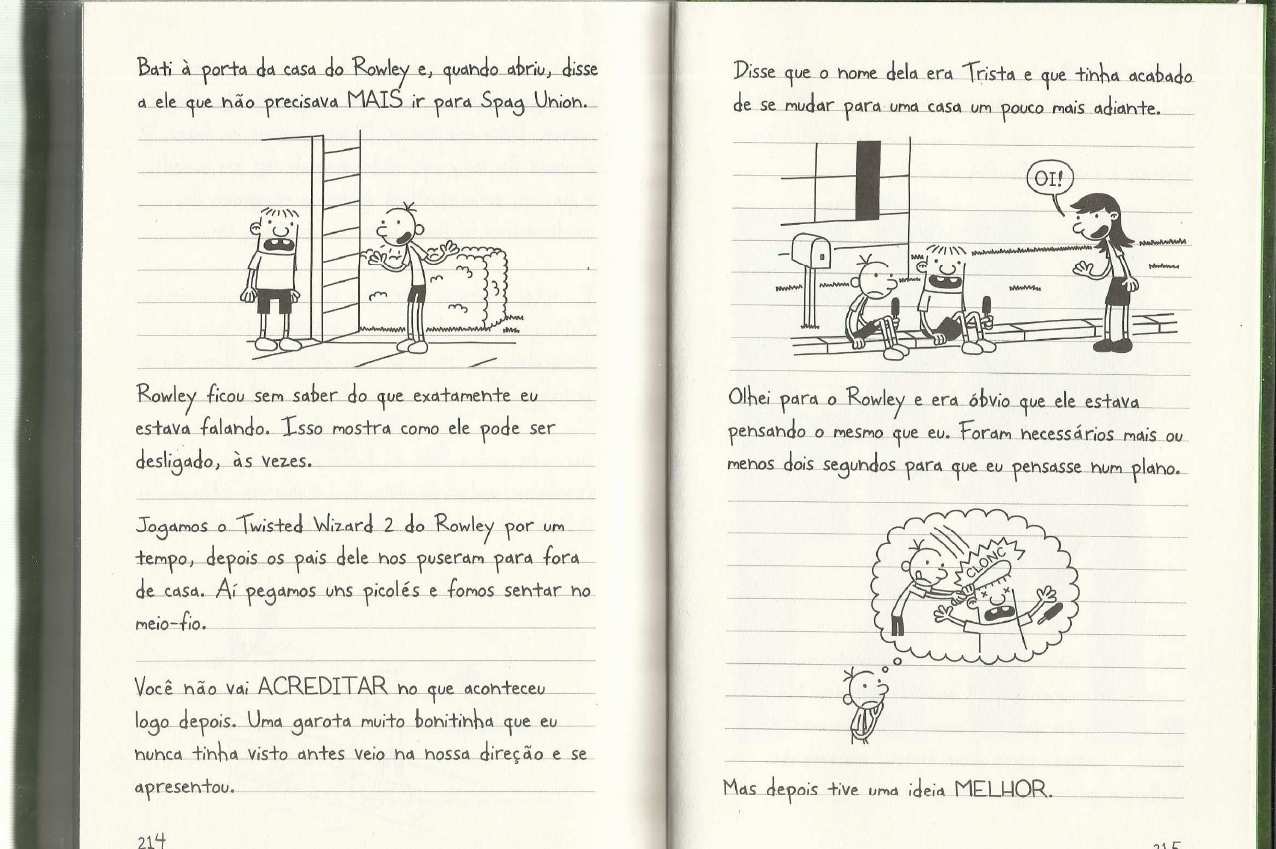 Bati à porta da casa do Rowley e, quando abriu, disse
a ele que não precisava MAIS ir para Spag Union.
Rowley ficou sem saber do que exatamente eu
estava falando. Isso mostra como ele pode ser
desligado, às vezes.
Jogamos o Twisted Wizard 2 do Rowley por um
tempo, depois os pais dele nos puseram para fora
de casa. Aí pegamos uns picolés e fomos sentar no
meio-fio.
Você não vai ACREDITAR no que aconteceu
logo depois. Uma garota muito bonitinha que eu
nunca tinha visto antes veio na nossa direção e se
apresentou.
214
Disse que o nome dela era Trista e que tinha acabado
de se mudar para uma casa um pouco mais adiante.
OI!
Olhei para o Rowley e era óbvio que ele estava
pensando o mesmo que eu. Foram necessários mais ou
menos dois segundos para que eu pensasse num plano.
CLONC
Mas depois tive uma ideia MELHOR.
215